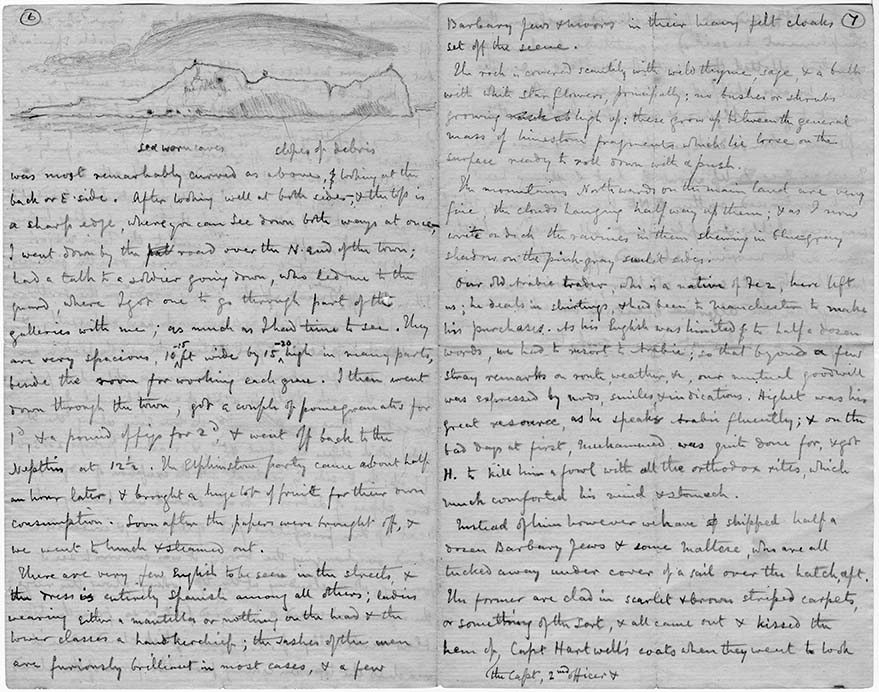 6
sea worn caves slopes of debris
was most remarkably curved as above, & looking at the
back or E. side. After looking well at both sides – & the top is
a sharp edge, where you can see down both ways at once,–
I went down by the road over the N. end of the town;
had a talk to a soldier going down, who led me to the
guard, where I got one to go through part of the
galleries with me; as much as I had time to see. They
are very spacious, 10-15 ft wide by 15-20 high in many parts,
beside the room for working each gun. I then went
down through the town, got a couple of pomegranates for
1ᵈ, & a pound of figs for 2ᵈ, & went off back to the
Nepthis at 12½. The Elphinstone party came about half
an hour later, & brought a huge lot of fruit for their own
consumption. Soon after the papers were brought off, &
we went to lunch & steamed out.
There are very few English to be seen in the streets, &
the dress is entirely Spanish among all others; ladies
wearing either a mantilla or nothing on the head & the
lower classes a handkerchief; the sashes of the men
are furiously brilliant in most cases, & a few
7
Barbary Jews & Moors in their heavy felt cloaks
set off the scene.
The rock is covered scantily with wild thyme, sage, & a bulb
with white star flowers, principally; no bushes or shrubs
growing high up: these grow up between the general
mass of limestone fragments which lie loose on the
surface ready to roll down with a push.
The mountains Northwards on the main land are very
fine, the clouds hanging half way up them; & as I now
write on deck the ravines in them shewing in blue gray
shadow on the pink gray sunlit sides.
Our old Arabic trader, who is a native of Fez, here left
us; he deals in shirtings, & had been to Manchester to make
his purchases. As his English was limited to half a dozen
words, we had to resort to Arabic; so that beyond a few
stray remarks on route, weather, &c, our mutual goodwill
was expressed by nods, smiles & indications. Highet was his
great resource, as he speaks Arabic fluently; & on the
bad days at first, Muhammed was quite done for, & got
H. to kill him a fowl with all the orthodox rites, which
much comforted his mind & stomach.
Instead of him however we have shipped half a
dozen Barbary Jews & some Maltese, who are all
tucked away under cover of a sail over the hatch, aft.
The former are clad in scarlet & brown striped carpets,
or something of the sort, & all came out & kissed the
hem of Capt Hartwell's coats when they went to look
the Capt, 2nd officer &